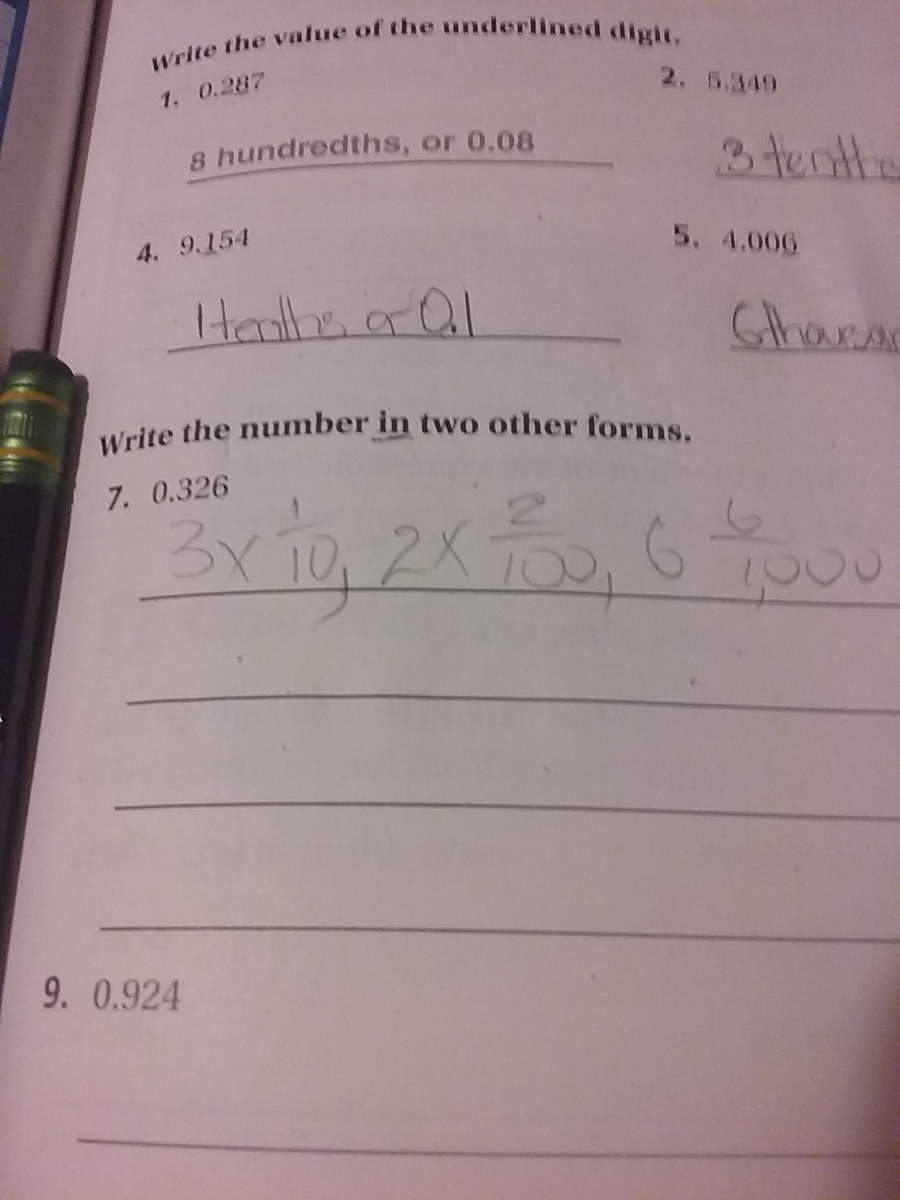 Write the value of the underlined digit.
1. 0.287
2. 5.349
8 hundredths, or 0.08
3 tenths
4. 9.154
5. 4.006
1 tenths or 0.1
6 thousan
Write the number in two other forms.
7. 0.326
3 x 1/10, 2 x 2/100, 6 6/1,000
9. 0.924